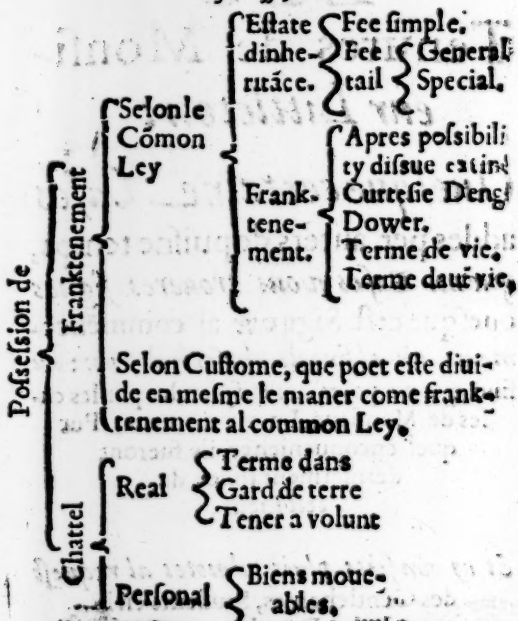 Possession de
Franktenement
Selon le
Cōmon
Ley
Estate
dinhe-
ritāce.
Fee simple.
Fee
tail
General
Special.
Frank-
tene-
ment.
Apres possibili
ty dissue extinct
Curtesie Deng
Dower.
Terme de vie.
Terme daut vie.
Selon Custome, que poet estre diui-
de en mesme le maner come frank-
tenement al common Ley.
Chattel
Real
Terme dans
Gard de terre
Tener a volunt
Personal
Biens moue-
ables.